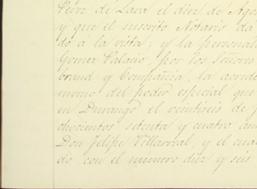 Pedro de Lara el diez de Agos
y que el suscrito Notario da
do a la vista; y la personal
Gomez Palacio por los Señores
brand y Compañia, la acredi
monio del poder especial que
en Durango el veintiseis de
chocientos setenta y cuatro an
Don Felipe Villarreal, y el cual
do con el numero diez y seis